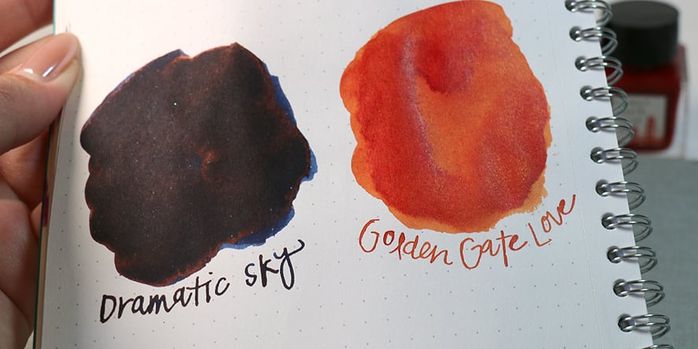 Dramatic Sky
Golden Gate Love